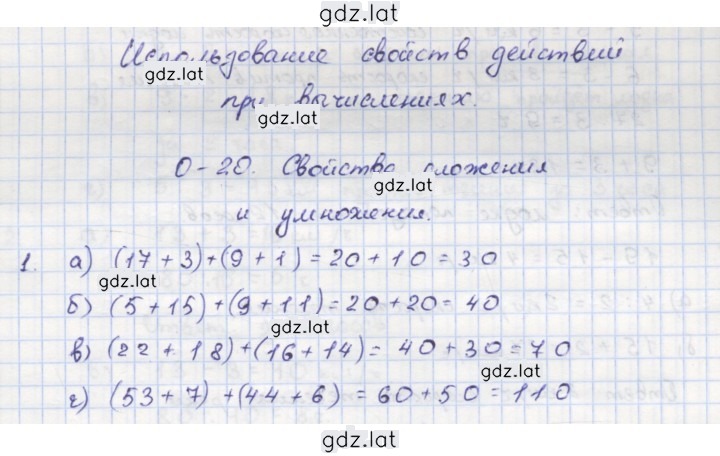 gdz.lat
Использование свойств действий
gdz.lat
при вычислениях.
gdz.lat
О-20. Свойства сложения
gdz.lat
и умножения.
1. а) (17 + 3)+(9 + 1) = 20 + 10 = 30
gdz.lat
б) (5 + 15) + (9 + 11) = 20 + 20 = 40
gdz.lat
в) (22 + 18) + (16 + 14) = 40 + 30 = 70
gdz.lat
г) (53 + 7) + (44 + 6) = 60 + 50 = 110
gdz.lat